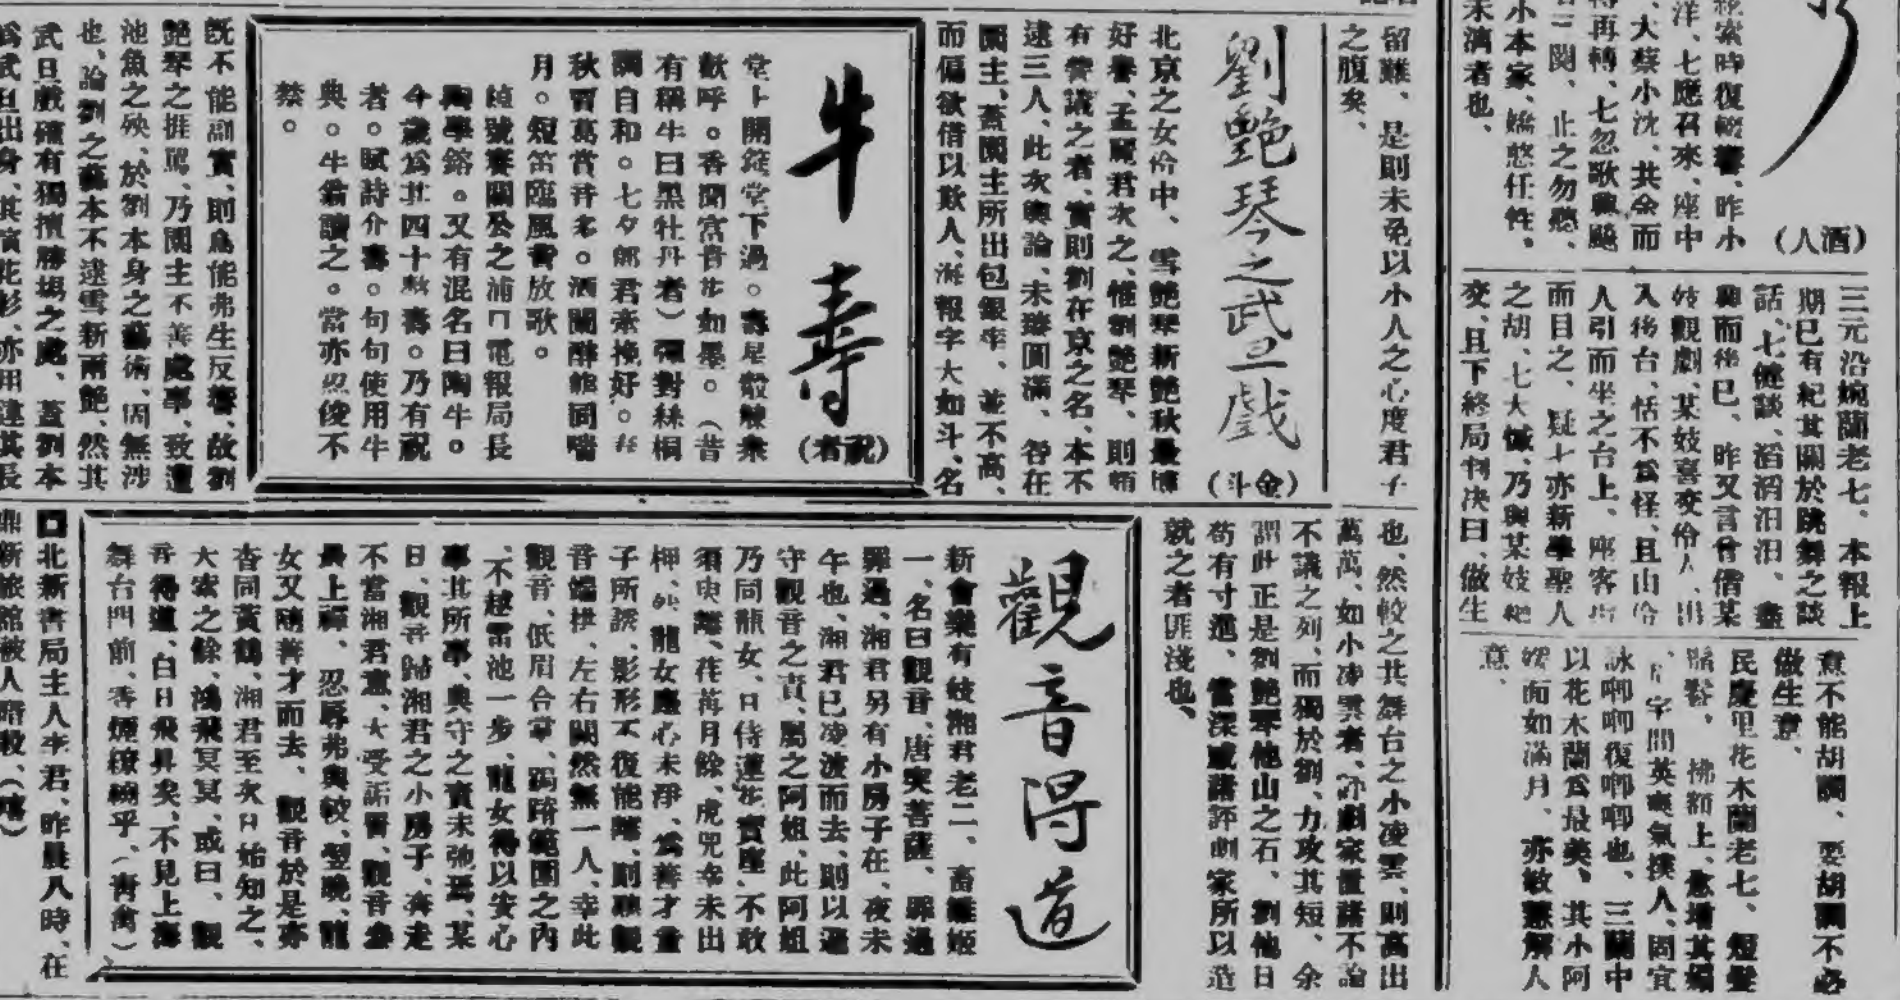 (酒人)
三元沿婉蘭老七、本報上
期已有紀其關於跳舞之談
話、七健談、滔滔汩汩、
而後已、昨又言曾偕某
妓觀劇、某妓喜交伶人、
入後台、恬不為怪、且
人引而坐之台上、座客
而目之、疑七亦新學聖人
之胡、七大慽、乃與某妓
交、且下終局判决曰、做生
意不能胡調、要胡調不必
做生意、
民慶里花木蘭老七、短髮
拂額上、
字間英爽氣撲人、固宜
詠唧唧復唧唧也、三蘭中
以花木蘭為最美、其小阿
媛面如滿月、亦敏慧解人
意、
留難、是則未免以小人之心度君子
之腹矣、
劉艷琴之武旦戲
(金斗)
北京之女伶中、雪艷琴新艷秋最博
好譽、孟麗君次之、惟劉艷琴、則頗
有訾議之者、實則劉在京之名、本不
逮三人、此次輿論、未臻圓滿、咎在
園主、蓋園主所出包銀率、並不高、
而偏欲借以欺人、海報字大如斗、名
既不能副實、則烏能弗生反響、故劉
艷琴之捱罵、乃園主不善處事、致遭
池魚之殃、於劉本身之藝術、固無涉
也、論劉之藝本不逮雪新兩艷、然其
武旦戲確有獨擅勝場之處、蓋劉本
為武旦出身、其演花衫、亦用違其長
也、然較之共舞台之小凌雲、則高出
萬萬、如小凌雲者、評劇家置諸不論
不議之列、而獨於劉、力攻其短、余
謂此正是劉艷琴他山之石、劉他日
苟有寸進、當深感諸評劇家所以造
就之者匪淺也、
牛壽
(祝者)
堂上開筵堂下過。壽星觳觫衆
歡呼。香聞宮音步如墨。(昔
有稱牛曰黑牡丹者)彈對絲桐
調自和。七夕郎君牽挽好。
秋賈葛賞音多。酒闌醉態同喘
月。短笛臨風書放歌。
綽號賽關公之浦口電報局長
陶學鎔。又有混名曰陶牛。
今歲為其四十嵗壽。乃有祝
者。賦詩介壽。句句使用牛
典。牛翁讀之。當亦忍俊不
禁。
觀音得道
新會樂有妓湘君老二、畜雛姬
一、名曰觀音、唐突菩薩、罪過
罪過、湘君另有小房子在、夜未
午也、湘君已凌波而去、則以遲
守觀音之責、屬之阿姐、此阿姐
乃同龍女、日侍蓮花寶座、不敢
須臾離、荏苒月餘、虎兕幸未出
柙、龍女塵心未淨、為善才童
子所誘、影形不復能離、則聽觀
音端拱、左右闃然無一人、幸此
觀音、低眉合掌、跼蹐範圍之內
、不越雷池一步、龍女得以安心
事其所事、典守之責未弛焉、某
日、觀音歸湘君之小房子、奔走
不當湘君意、大受詬詈、觀音參
最上禪、忍辱弗與較、翌曉、龍
女又隨善才而去、觀音於是亦
杳同黃鶴、湘君至次日始知之、
大索之餘、鴻飛冥冥、或曰、觀
音得道、白日飛昇矣、不見上海
舞台門前、香煙繚繞乎、(青禽)
口北新書局主人李君、昨晨八時、在